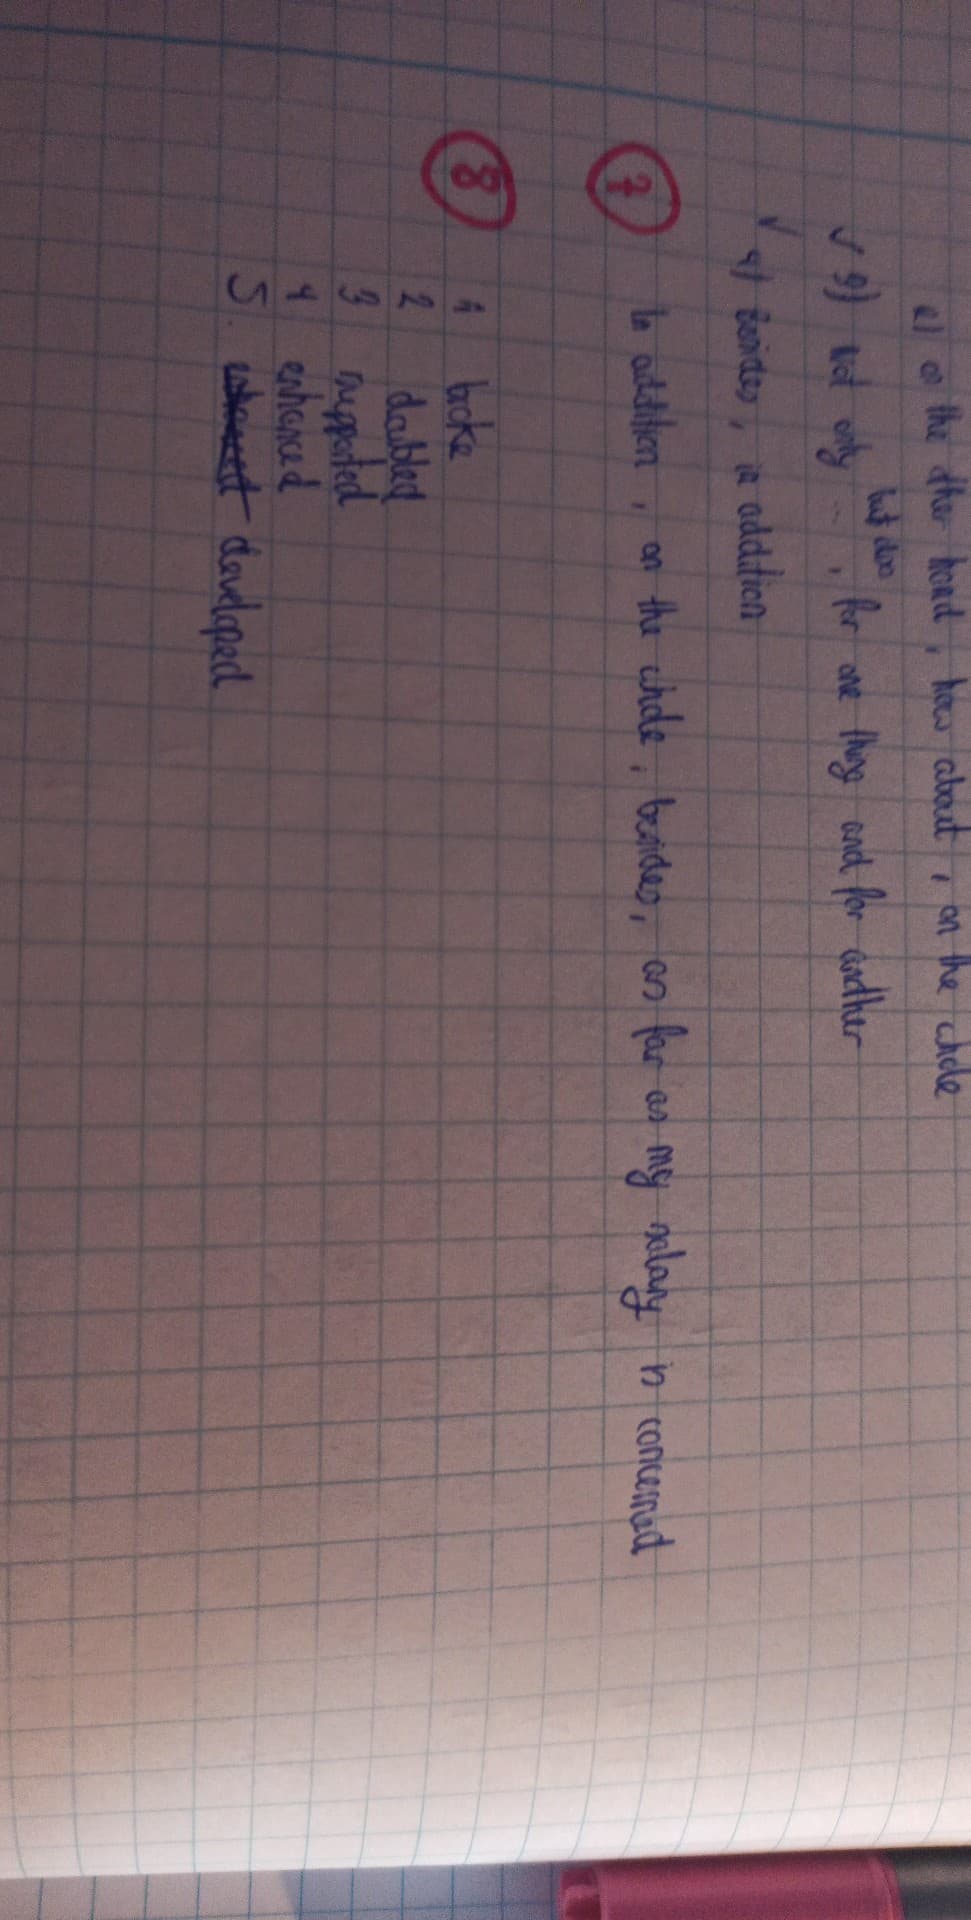 e) on the other hand, how about, on the whole
but also
✓ g) not only ... , for one thing and for another
✓ 4) besides, in addition
7 In addition, on the whole, besides, as far as my salary is concerned
8 1 broke
2 doubled
3 supported
4 enhanced
5. developed